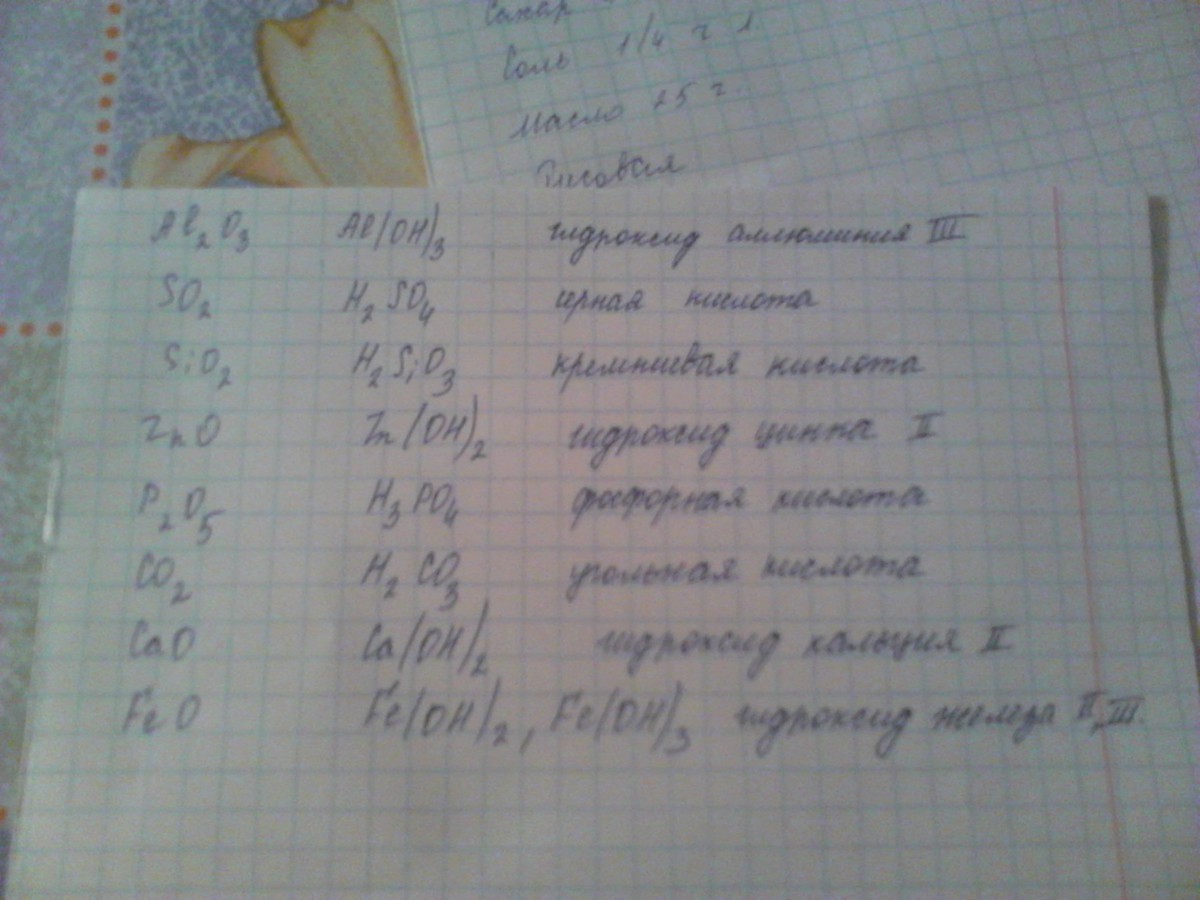 Сахар
Соль 1/4 ч л.
Масло 25 г.
Рисовая
Al2O3 Al(OH)3 гидроксид аллюминия III
SO2 H2SO4 серная кислота
SiO2 H2SiO3 кремниевая кислота
ZnO Zn(OH)2 гидроксид цинка II
P2O5 H3PO4 фосфорная кислота
CO2 H2CO3 угольная кислота
CaO Ca(OH)2 гидроксид кальция II
FeO Fe(OH)2, Fe(OH)3 гидроксид железа II, III.